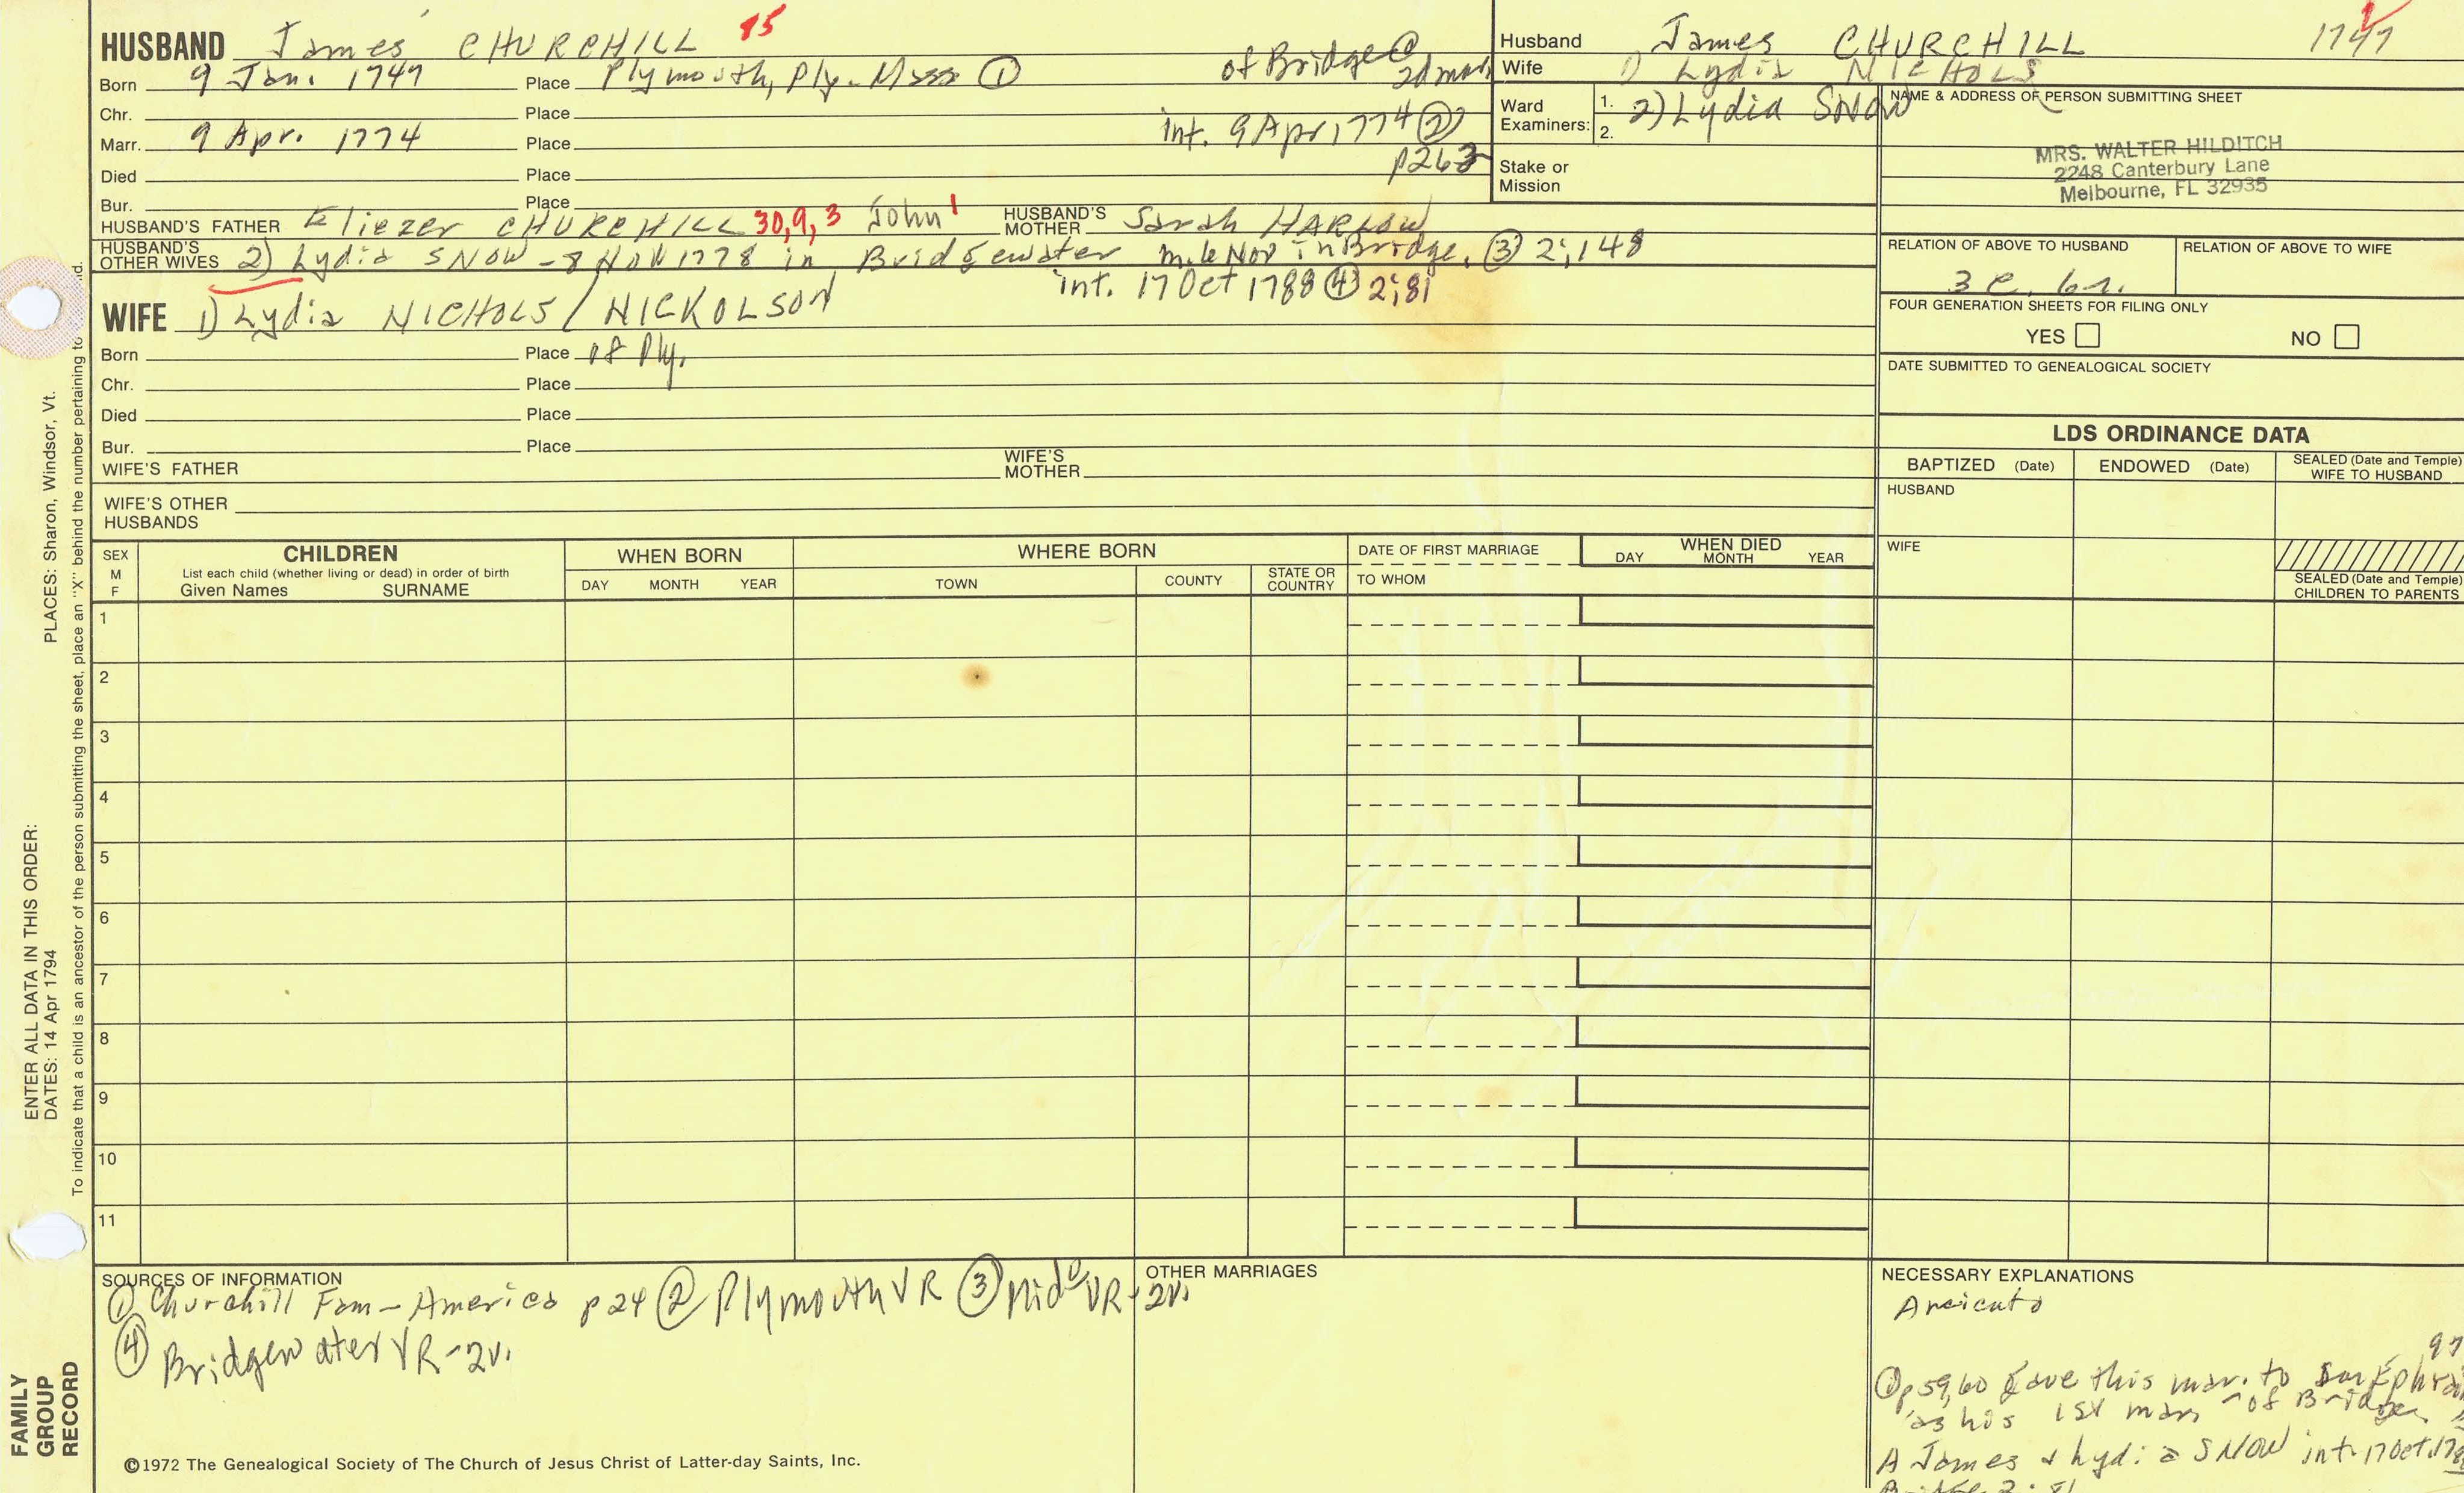 HUSBAND James CHURCHILL 85
Born 9 Jan. 1747 Place Plymouth, Ply. Mass ① of Bridge ④ 2d mar.
Chr. Place
Marr. 9 Apr. 1774 Place int. 9 Apr 1774 ② p263
Died Place
Bur. Place
HUSBAND'S FATHER Eliezer CHURCHILL 30, 9, 3 John 1 HUSBAND'S MOTHER Sarah HARLOW
HUSBAND'S OTHER WIVES 2) Lydia SNOW - 8 NOV 1778 in Bridgewater in Bridge. ③ 2;148
int. 17 Oct 1788 ④ 2;81
WIFE 1) Lydia NICHOLS / NICKOLSON
Born Place of Ply.
Chr. Place
Died Place
Bur. Place
WIFE'S FATHER WIFE'S MOTHER
WIFE'S OTHER HUSBANDS
Husband James CHURCHILL 1747
Wife 1) Lydia NICHOLS
Ward Examiners: 1. 2. 2) Lydia SNOW
Stake or Mission
NAME & ADDRESS OF PERSON SUBMITTING SHEET
MRS. WALTER HILDITCH
2248 Canterbury Lane
Melbourne, FL 32935
RELATION OF ABOVE TO HUSBAND RELATION OF ABOVE TO WIFE
3 c. 6r.
FOUR GENERATION SHEETS FOR FILING ONLY
YES NO
DATE SUBMITTED TO GENEALOGICAL SOCIETY
LDS ORDINANCE DATA
BAPTIZED (Date) ENDOWED (Date) SEALED (Date and Temple) WIFE TO HUSBAND
HUSBAND
WIFE
SEALED (Date and Temple) CHILDREN TO PARENTS
SEX M F
CHILDREN
List each child (whether living or dead) in order of birth
Given Names SURNAME
WHEN BORN
DAY MONTH YEAR
WHERE BORN
TOWN COUNTY STATE OR COUNTRY
DATE OF FIRST MARRIAGE
TO WHOM
WHEN DIED
DAY MONTH YEAR
1
2
3
4
5
6
7
8
9
10
11
SOURCES OF INFORMATION
① Churchill Fam - America p 24 ② Plymouth VR ③ Mid VR - 2v.
④ Bridgewater VR - 2v.
OTHER MARRIAGES
NECESSARY EXPLANATIONS
97
① p 59, 60 gave this mar. to Ephra
as his 1st mar - of Bridge
A James & Lydia SNOW int. 17 Oct. 178
©1972 The Genealogical Society of The Church of Jesus Christ of Latter-day Saints, Inc.
ENTER ALL DATA IN THIS ORDER:
DATES: 14 Apr 1794 PLACES: Sharon, Windsor, Vt.
To indicate that a child is an ancestor of the person submitting the sheet, place an "X" behind the number pertaining to
FAMILY GROUP RECORD